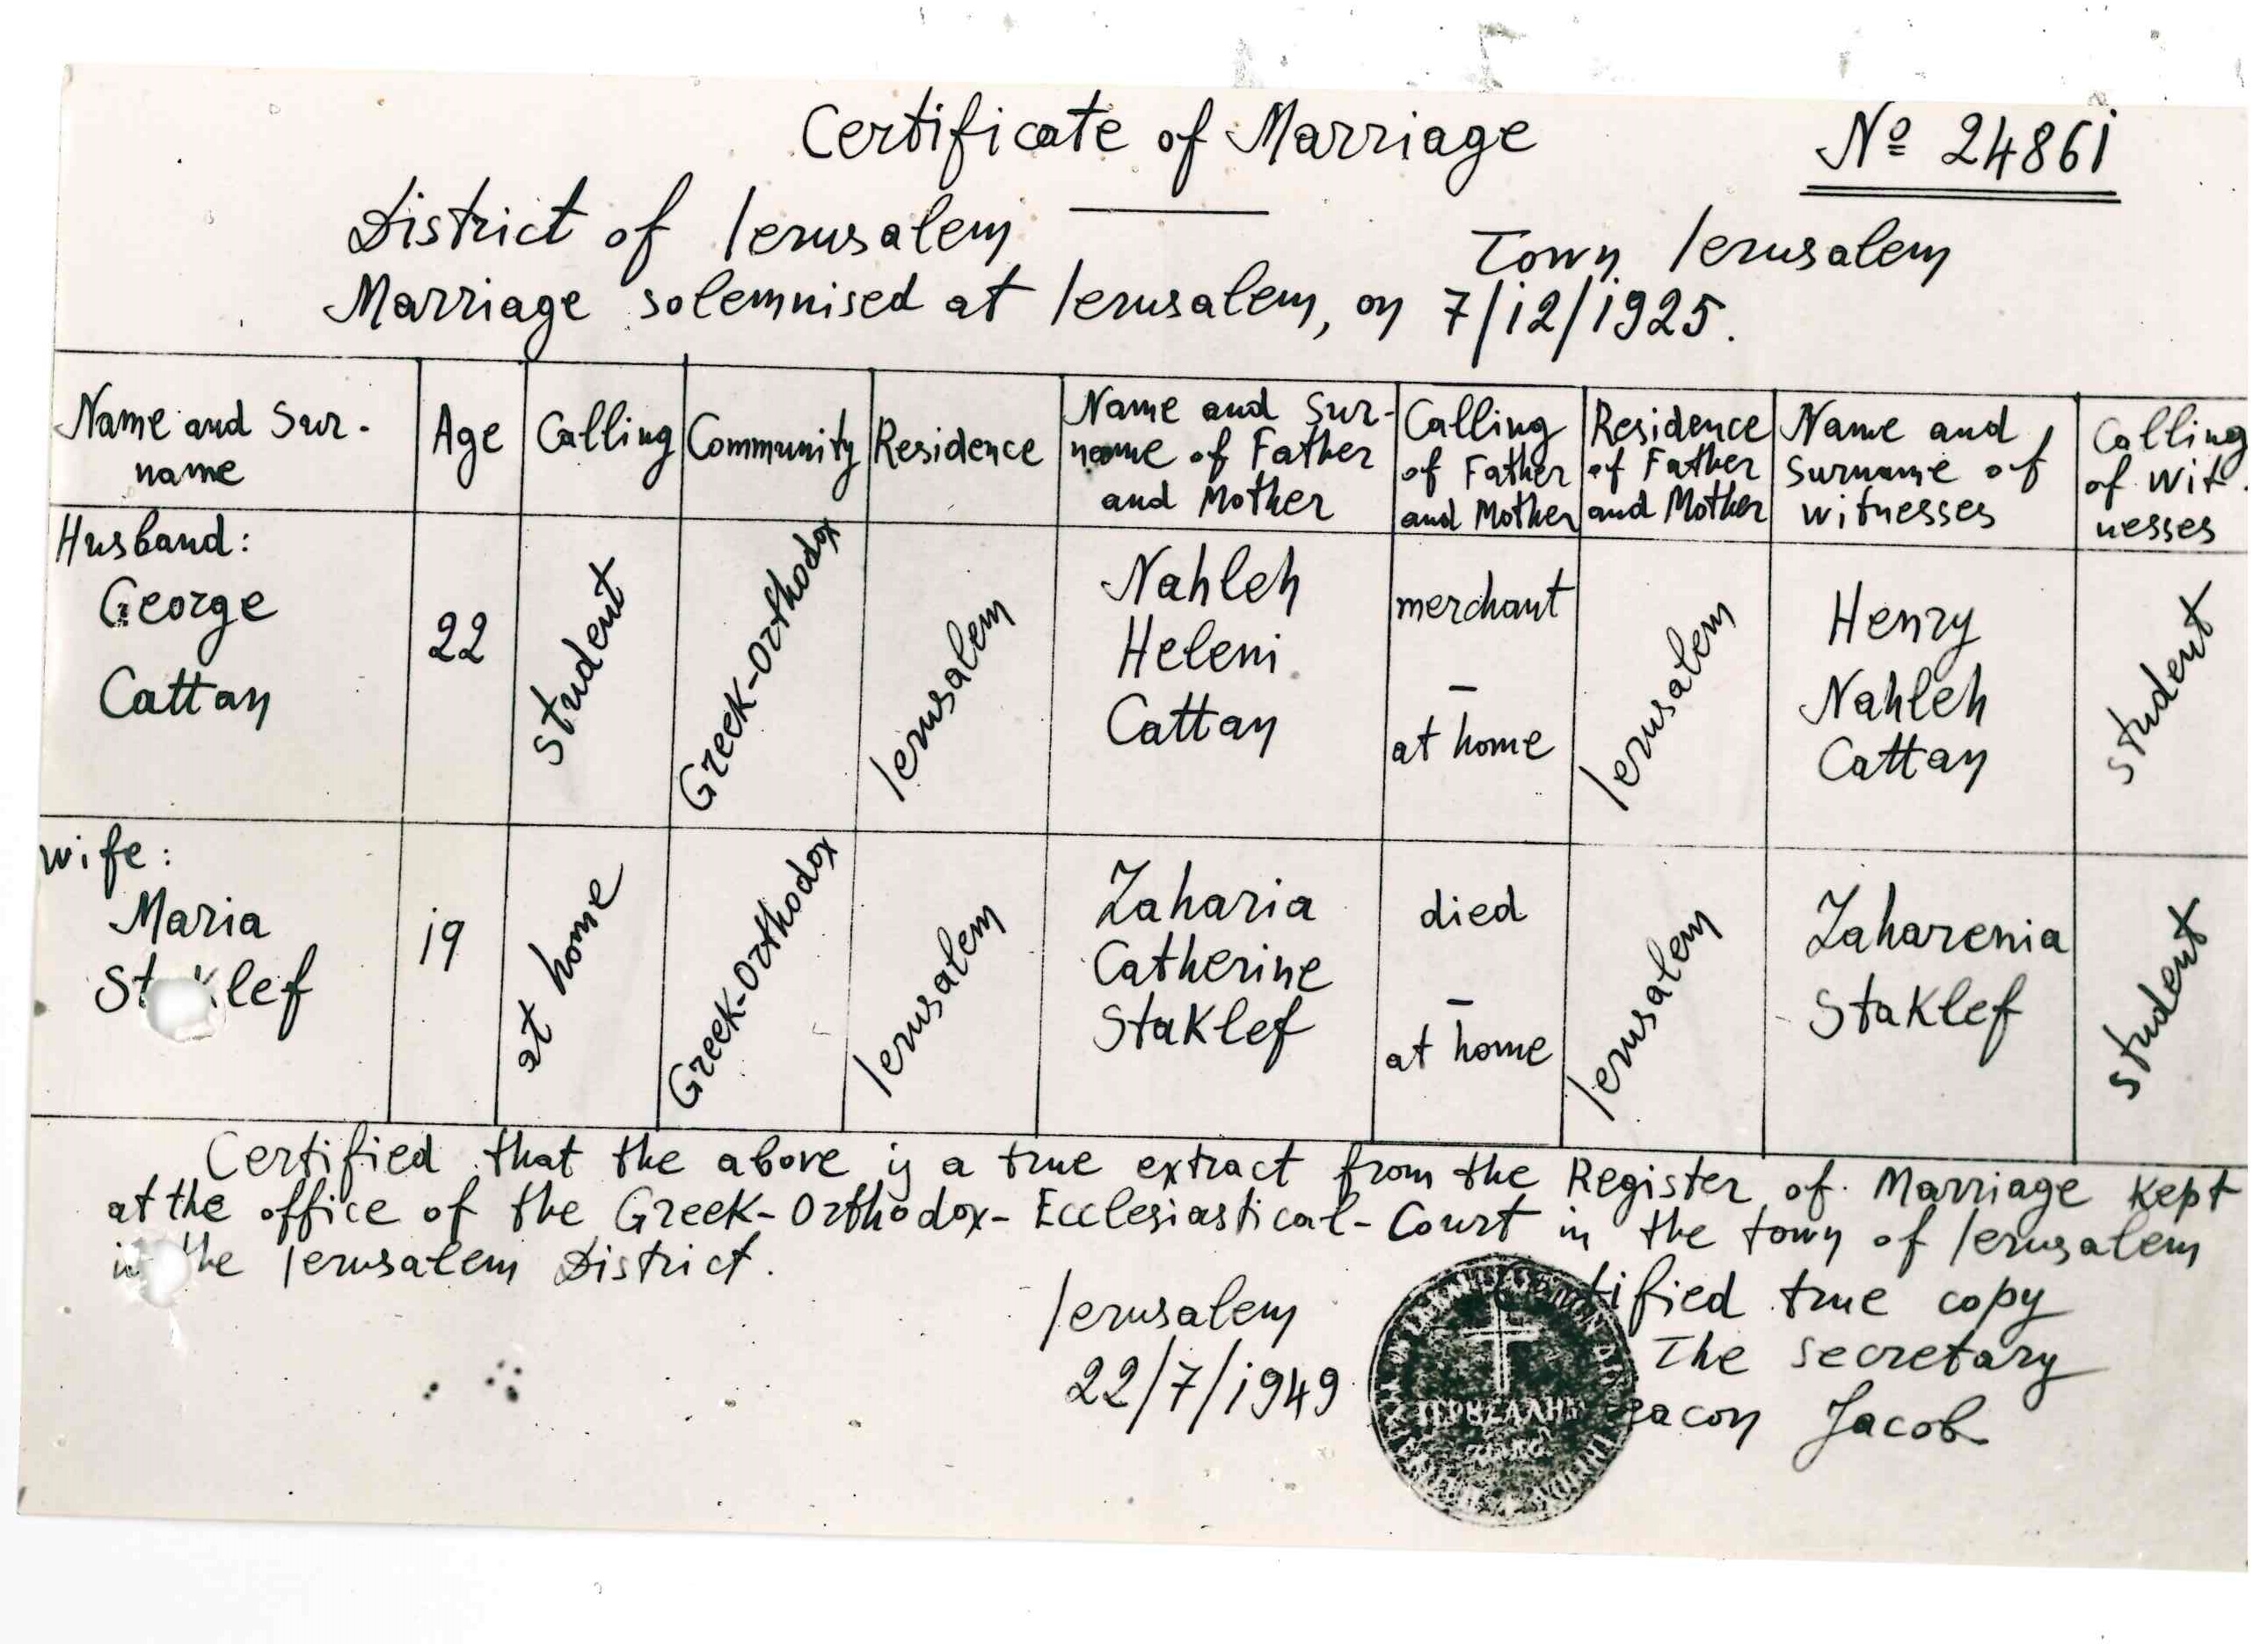 Certificate of Marriage
Nº 24861
District of Ierusalem
Town Ierusalem
Marriage solemnised at Ierusalem, on 7/12/1925.
Name and Sur-
name
Age
Calling
Community
Residence
Name and Sur-
name of Father
and Mother
Calling
of Father
and Mother
Residence
of Father
and Mother
Name and
Surname of
witnesses
Calling
of Wit-
nesses
Husband:
George
Cattan
22
student
Greek-Orthodox
Ierusalem
Nahleh
Heleni
Cattan
merchant
–
at home
Ierusalem
Henry
Nahleh
Cattan
student
wife:
Maria
Staklef
19
at home
Greek-Orthodox
Ierusalem
Zaharia
Catherine
Staklef
died
–
at home
Ierusalem
Zaharenia
Staklef
student
Certified that the above is a true extract from the Register of Marriage kept
at the office of the Greek-Orthodox-Ecclesiastical-Court in the town of Ierusalem
in the Ierusalem District.
Ierusalem
22/7/1949
Certified true copy
The secretary
Deacon Jacob
ΙΕΡΟΥΣΑΛΗΜ